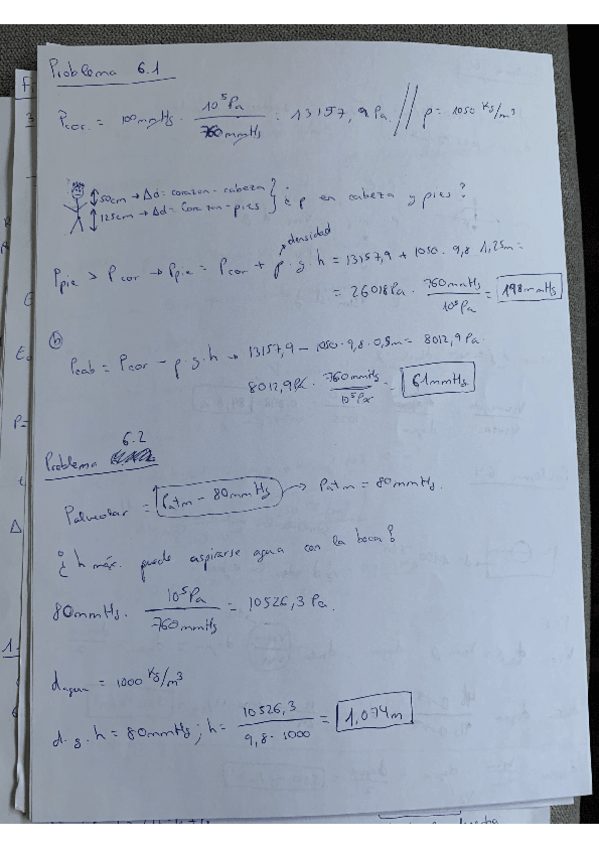 Problema 6.1
Pcor. = 100mmHg · 10⁵Pa / 760mmHg = 13157,9 Pa // ρ = 1050 Kg/m³
50cm → Δd = corazon - cabeza
125cm → Δd = Corazon - pies } ¿ p en cabeza y pies?
densidad
Ppie > Pcor → Ppie = Pcor + ρ · g · h = 13157,9 + 1050 · 9,8 · 1,25m =
= 26018Pa · 760mmHg / 10⁵Pa = 198mmHg
b
Pcab = Pcor - ρ · g · h → 13157,9 - 1050 · 9,8 · 0,5m = 8012,9 Pa.
8012,9Pa · 760mmHg / 10⁵Pa = 61mmHg
6.2
Problema
Palveolar = Patm - 80mmHg → Patm = 80mmHg.
¿ h máx. puede aspirarse agua con la boca?
80mmHg. 10⁵Pa / 760mmHg = 10526,3 Pa.
dagua = 1000 Kg/m³
d · g · h = 80mmHg ; h = 10526,3 / 9,8 · 1000 = 1,074m